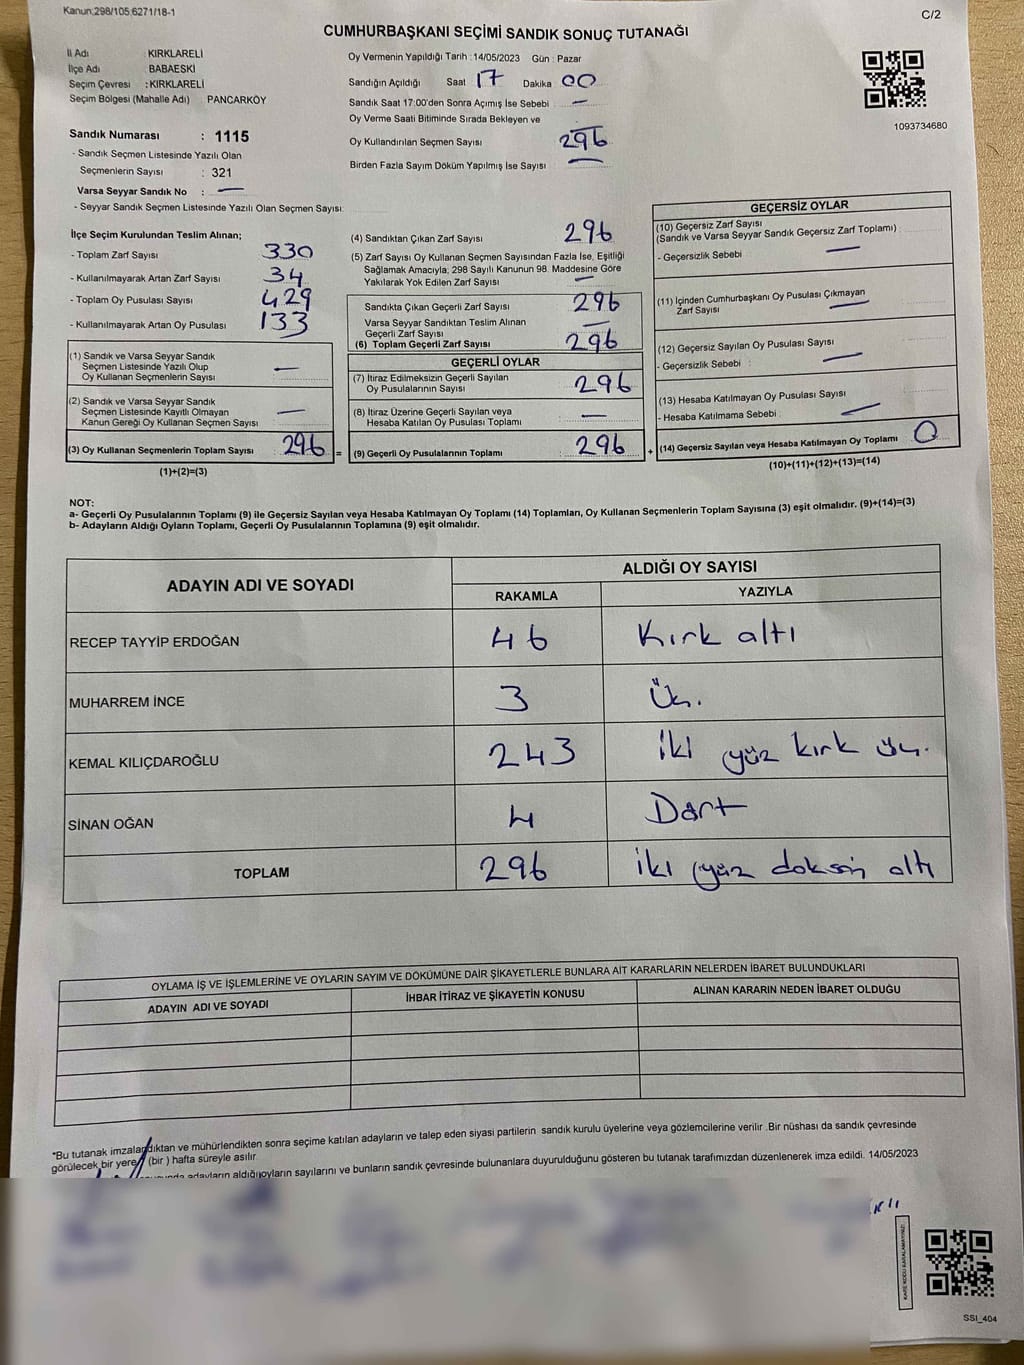 Kanun:298/105 6271/18-1
C/2
CUMHURBAŞKANI SEÇİMİ SANDIK SONUÇ TUTANAĞI
İl Adı : KIRKLARELİ
İlçe Adı : BABAESKİ
Seçim Çevresi : KIRKLARELİ
Seçim Bölgesi (Mahalle Adı) PANCARKÖY
Sandık Numarası : 1115
- Sandık Seçmen Listesinde Yazılı Olan
Seçmenlerin Sayısı : 321
Varsa Seyyar Sandık No : —
- Seyyar Sandık Seçmen Listesinde Yazılı Olan Seçmen Sayısı:
Oy Vermenin Yapıldığı Tarih : 14/05/2023 Gün : Pazar
Sandığın Açıldığı Saat 17 Dakika 00
Sandık Saat 17:00'den Sonra Açılmış İse Sebebi : —
Oy Verme Saati Bitiminde Sırada Bekleyen ve
Oy Kullandırılan Seçmen Sayısı 296
Birden Fazla Sayım Döküm Yapılmış İse Sayısı —
1093734680
İlçe Seçim Kurulundan Teslim Alınan;
- Toplam Zarf Sayısı 330
- Kullanılmayarak Artan Zarf Sayısı 34
- Toplam Oy Pusulası Sayısı 429
- Kullanılmayarak Artan Oy Pusulası 133
(1) Sandık ve Varsa Seyyar Sandık
Seçmen Listesinde Yazılı Olup
Oy Kullanan Seçmenlerin Sayısı —
(2) Sandık ve Varsa Seyyar Sandık
Seçmen Listesinde Kayıtlı Olmayan
Kanun Gereği Oy Kullanan Seçmen Sayısı —
(3) Oy Kullanan Seçmenlerin Toplam Sayısı : 296 =
(1)+(2)=(3)
(4) Sandıktan Çıkan Zarf Sayısı 296
(5) Zarf Sayısı Oy Kullanan Seçmen Sayısından Fazla İse, Eşitliği
Sağlamak Amacıyla, 298 Sayılı Kanunun 98. Maddesine Göre
Yakılarak Yok Edilen Zarf Sayısı —
Sandıkta Çıkan Geçerli Zarf Sayısı 296
Varsa Seyyar Sandıktan Teslim Alınan
Geçerli Zarf Sayısı —
(6) Toplam Geçerli Zarf Sayısı 296
GEÇERLİ OYLAR
(7) İtiraz Edilmeksizin Geçerli Sayılan
Oy Pusulalarının Sayısı 296
(8) İtiraz Üzerine Geçerli Sayılan veya
Hesaba Katılan Oy Pusulası Toplamı —
(9) Geçerli Oy Pusulalarının Toplamı : 296 +
GEÇERSİZ OYLAR
(10) Geçersiz Zarf Sayısı
(Sandık ve Varsa Seyyar Sandık Geçersiz Zarf Toplamı) :
- Geçersizlik Sebebi —
(11) İçinden Cumhurbaşkanı Oy Pusulası Çıkmayan
Zarf Sayısı —
(12) Geçersiz Sayılan Oy Pusulası Sayısı
- Geçersizlik Sebebi : —
(13) Hesaba Katılmayan Oy Pusulası Sayısı
- Hesaba Katılmama Sebebi : —
(14) Geçersiz Sayılan veya Hesaba Katılmayan Oy Toplamı 0
(10)+(11)+(12)+(13)=(14)
NOT:
a- Geçerli Oy Pusulalarının Toplamı (9) ile Geçersiz Sayılan veya Hesaba Katılmayan Oy Toplamı (14) Toplamları, Oy Kullanan Seçmenlerin Toplam Sayısına (3) eşit olmalıdır. (9)+(14)=(3)
b- Adayların Aldığı Oyların Toplamı, Geçerli Oy Pusulalarının Toplamına (9) eşit olmalıdır.
ADAYIN ADI VE SOYADI
ALDIĞI OY SAYISI
RAKAMLA YAZIYLA
RECEP TAYYİP ERDOĞAN 46 Kırk altı
MUHARREM İNCE 3 Üç.
KEMAL KILIÇDAROĞLU 243 İki yüz kırk üç.
SİNAN OĞAN 4 Dört
TOPLAM 296 iki yüz doksan altı
OYLAMA İŞ VE İŞLEMLERİNE VE OYLARIN SAYIM VE DÖKÜMÜNE DAİR ŞİKAYETLERLE BUNLARA AİT KARARLARIN NELERDEN İBARET BULUNDUKLARI
ADAYIN ADI VE SOYADI İHBAR İTİRAZ VE ŞİKAYETİN KONUSU ALINAN KARARIN NEDEN İBARET OLDUĞU
*Bu tutanak imzalandıktan ve mühürlendikten sonra seçime katılan adayların ve talep eden siyasi partilerin sandık kurulu üyelerine veya gözlemcilerine verilir .Bir nüshası da sandık çevresinde
görülecek bir yere (bir ) hafta süreyle asılır
adayların aldığı oyların sayılarını ve bunların sandık çevresinde bulunanlara duyurulduğunu gösteren bu tutanak tarafımızdan düzenlenerek imza edildi. 14/05/2023
KARE KODU KARALAMAYINIZ!
SSI_404